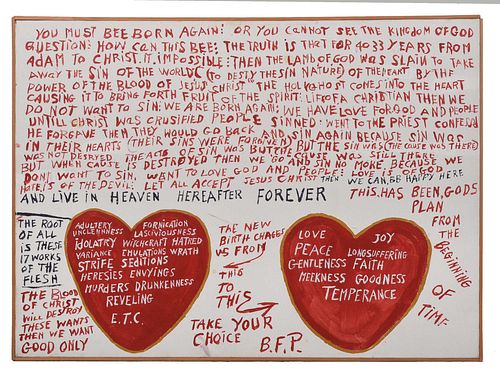 YOU MUST BEE BORN AGAIN! OR YOU CANNOT SEE THE KINGDOM OF GOD
QUESTION: HOW CAN THIS BEE: THE TRUTH IS THAT FOR 4033 YEARS FROM
ADAM TO CHRIST. IT. IMPOSSIBLE: THEN THE LAMB OF GOD WAS SLAIN TO TAKE
AWAY THE SIN OF THE WORLD (TO DESTY THE SIN NATURE) OF THE HEART BY THE
POWER OF THE BLOOD OF JESUS CHRIST THE HOLY GHOST COMES INTO THE HEART
CAUSING IT TO BRING FORTH FRUITS OF THE SPIRIT: LIFE OF A CHRISTIAN THEN WE
DO NOT WANT TO SIN: WE ARE BORN AGAIN: WE HAVE LOVE FOR GOD AND PEOPLE
UNTIL CHRIST WAS CRUSIFIED PEOPLE SINNED: WENT TO THE PRIEST CONFERSD
HE FORGAVE THEM THEY WOULD GO BACK AND SIN AGAIN BECAUSE SIN WAS
IN THEIR HEARTS (THEIR SINS WERE FORGIVEN) BUT THE SIN WAS (THE CAUSE WAS THERE)
WAS NOT DESTROYED THE ACTS OF SIN, BUT THE CAUSE WAS STILL THERE
BUT WHEN CAUSE IS DESTROYED THEN WE GO AND SIN NO MORE BECAUSE WE
DONT WANT TO SIN, WANT TO LOVE GOD AND PEOPLE: LOVE IS OF GOD
HATE IS OF THE DEVIL: LET ALL ACCEPT JESUS CHRIST THEN WE CAN BE HAPPY HERE
AND LIVE IN HEAVEN HEREAFTER FOREVER
THE ROOT
OF ALL
IS THESE
17 WORKS
OF THE
FLESH
THE BLOOD
OF CHRIST
WILL DESTROY
THESE WANTS
THEN WE WANT
GOOD ONLY
ADULTERY FORNICATION
UNCLENNNESS LASCIVIOUSNESS
IDOLATRY WITCHCRAFT HATRED
VARIANCE EMULATIONS WRATH
STRIFE SEDITIONS
HERESIES ENVYINGS
MURDERS DRUNKENNESS
REVELING
E.T.C.
THE NEW
BIRTH CHAGES
US FROM
THIS
TO
THIS
TAKE YOUR
CHOICE B.F.P.
LOVE JOY
PEACE LONGSUFFERING
GENTLENESS FAITH
MEEKNESS GOODNESS
TEMPERANCE
THIS HAS BEEN, GODS
PLAN
FROM
THE BEGINNING
OF
TIME